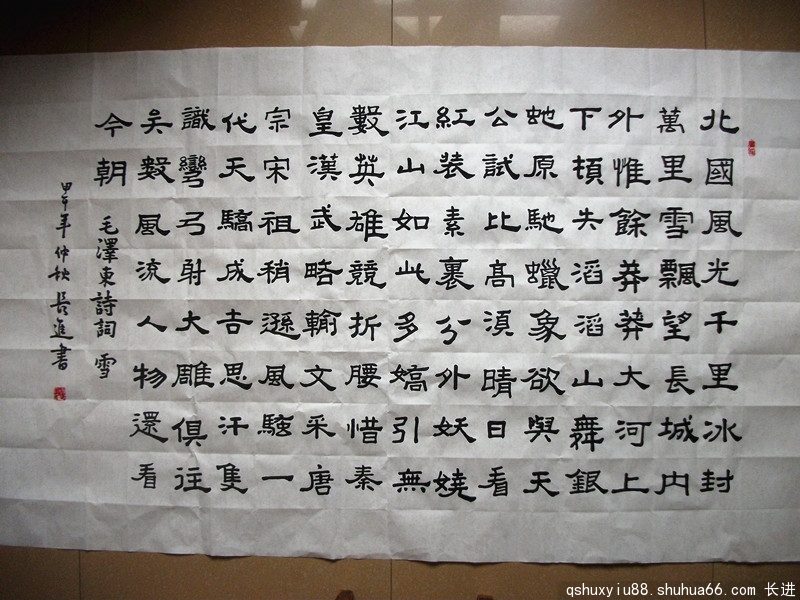 北國風光千里冰封
萬里雪飄望長城内
外惟餘莽莽大河上
下頓失滔滔山舞銀
虵原馳蠟象欲與天
公試比高須晴日看
紅装素裹分外妖嬈
江山如此多嬌引無
數英雄競折腰惜秦
皇漢武略輸文采唐
宗宋祖稍遜風騷一
代天驕成吉思汗隻
識彎弓射大雕俱往
矣數風流人物還看
今朝
毛澤東詩詞 雪
甲午年仲秋 長進書
qshuxyiu88.shuhua66.com 长进